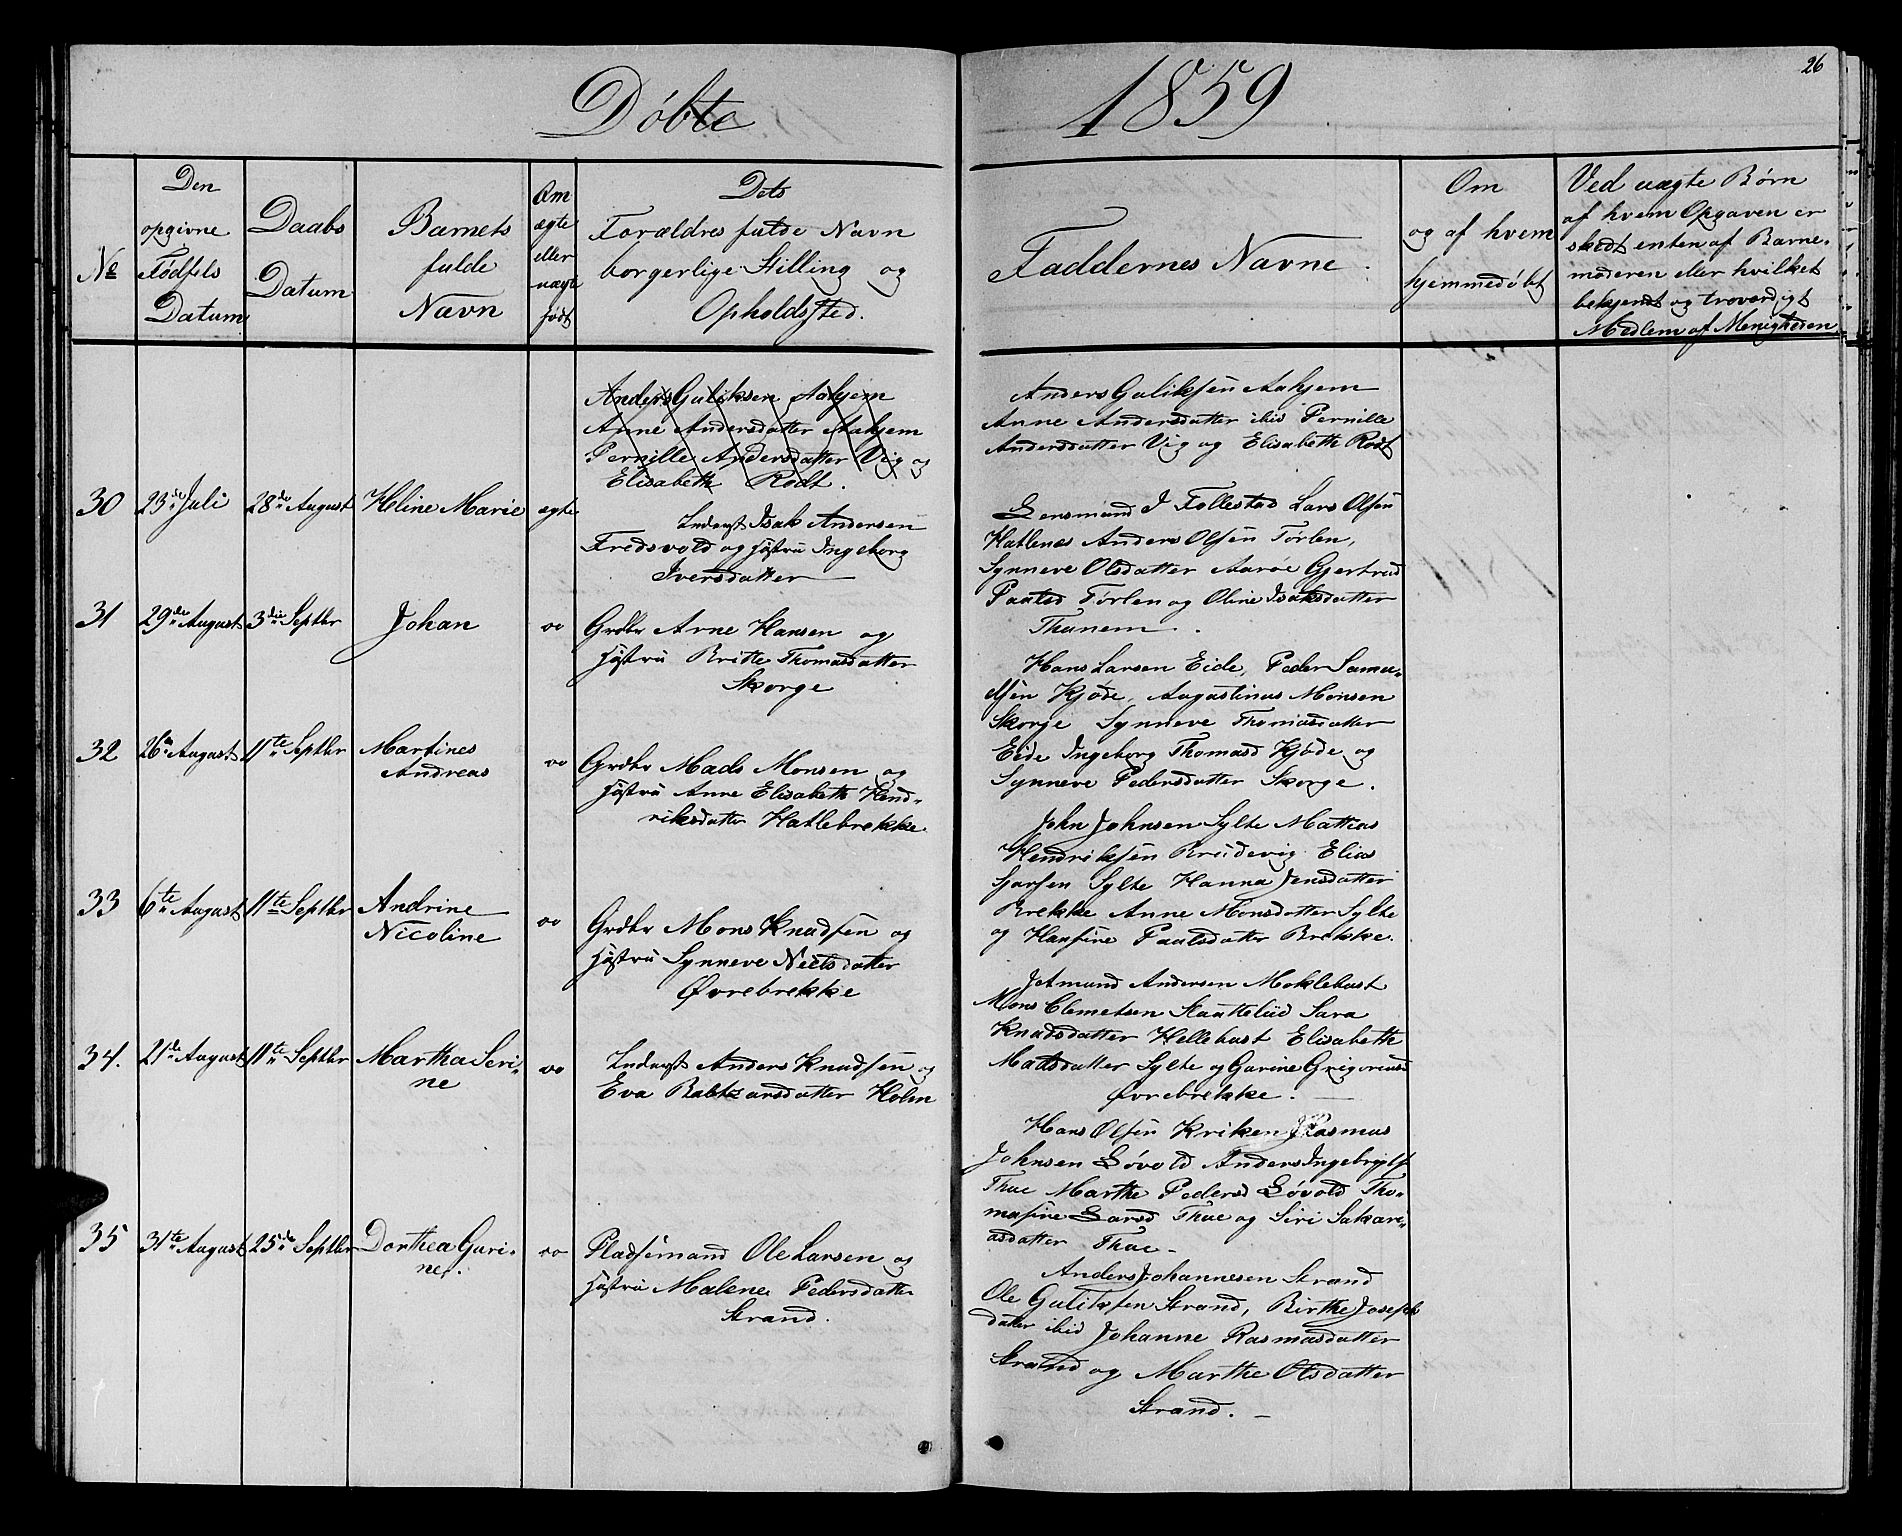 Døbte
1859
26
No
Den
opgivne
Fødsels
Datum
Daabs
Datum
Barnets
fulde
Navn
Om
ægte
eller
uægte
født
Dets
Forældres fulde Navn
borgerlige Stilling og
Opholdssted.
Faddernes Navne.
Om
og af hvem
hjemmedøbt
Ved uægte Børn
af hvem Opgaven er
skedt enten af Barne-
moderen eller hvilket
bekjendt og troværdigt
Medlem af Menigheden
Anders Guliksen Aahjem
Anne Andersdatter Aahjem
Pernille Andersdatter Vig og
Elisabeth Rodt.
Anders Guliksen Aahjem
Anne Andersdatter ibid Pernille
Andersdatter Vig og Elisabeth Rodt
30 23de Juli 28de August Heline Marie ægte
Inderst Isak Andersen
Fredsvold og Hustru Ingeborg
Iversdatter
Lensmand J Follestad Lars Olsen
Hatlenes Anders Olsen Førlen,
Synneve Olsdatter Aarøe Gjertrud
Paulsd Førlen og Oline Isaksdatter
Thunem.
31 29de August 3die Septbr Johan oo
Grdbr Arne Hansen og
Hustru Brithe Thomasdatter
Skorge
Hans Larsen Eide, Peder Samu-
elsen Kjøde, Augustinus Monsen
Skorge Synneve Thomasdatter
Eide Ingeborg Thomasd Kjøde og
Synneve Pedersdatter Skorge.
32 26de August 11te Septbr Martines
Andreas oo
Grdbr Mads Monsen og
Hustru Anne Elisabeth Hend-
riksdatter Hatlebrekke
John Johnsen Sylte Mathias
Hendriksen Brudevig Elias
Sylte Hanna Jensdatter
Brekke Anne Monsdatter Sylte
og Hansine Paulsdatter Brekke.
33 6te August 11te Septbr Andrine
Nicoline oo
Grdbr Mons Knudsen og
Hustru Synneve Nielsdatter
Øvrebrekke
Andersen Moklebust
Mons Clemetsen Sara
Knudsdatter Hellebust Elisabeth
Madsdatter Sylte og Garine Grigoriusd
Øvrebrekke.
34. 21de August 11te Septbr Martha Seri-
ne oo
Inderst Anders Knudsen og
Eva Baltzarsdatter Holm
Hans Olsen Kriken Rasmus
Johnsen Løvold Anders Ingebrigts
Thue Marthe Pedersd Løvold Tho-
masine Larsd Thue og Siri Sakari-
asdatter Thue-
35 31te August 25de Septbr Dorthea Guri-
ne. oo
Pladsemand Ole Larsen og
Hustru Malene Pedersdatter
Strand.
Anders Johannesen Strand
Ole Guliksen Strand, Birthe Joseph
datter ibid Johanne Rasmusdatter
Strand og Marthe Olsdatter
Strand.-